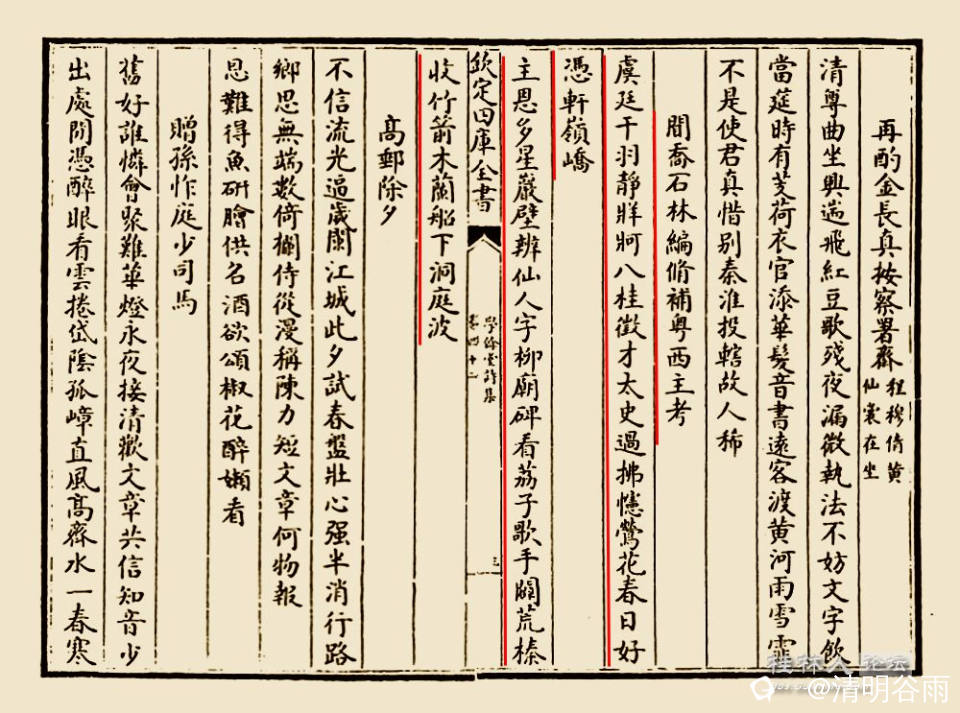 再酌金長真按察署齋程穆倩黄
仙裳在坐
清尊曲坐興遄飛紅豆歌殘夜漏微執法不妨文字飲
當筵時有芰荷衣官添華髮音書遠客渡黄河雨雪霏
不是使君真惜别秦淮投轄故人稀
聞喬石林編脩補粤西主考
虞廷干羽靜牂牁八桂徵才太史過拂幰鶯花春日好
憑軒嶺嶠
主恩多星巖壁辨仙人字柳廟碑看荔子歌手闢荒榛
欽定四庫全書
學餘堂詩集
卷四十二
三
收竹箭木蘭船下洞庭波
高郵除夕
不信流光逼歲闌江城此夕試春盤壯心强半消行路
鄉思無端數倚欄侍從漫稱陳力短文章何物報
恩難得魚硏膾供名酒欲頌椒花醉嬾看
贈孫怍庭少司馬
舊好誰憐會聚難華燈永夜接清歡文章共信知音少
出處閒憑醉眼看雲捲岱陰孤嶂直風髙齊水一春寒
桂林人论坛
@清明谷雨